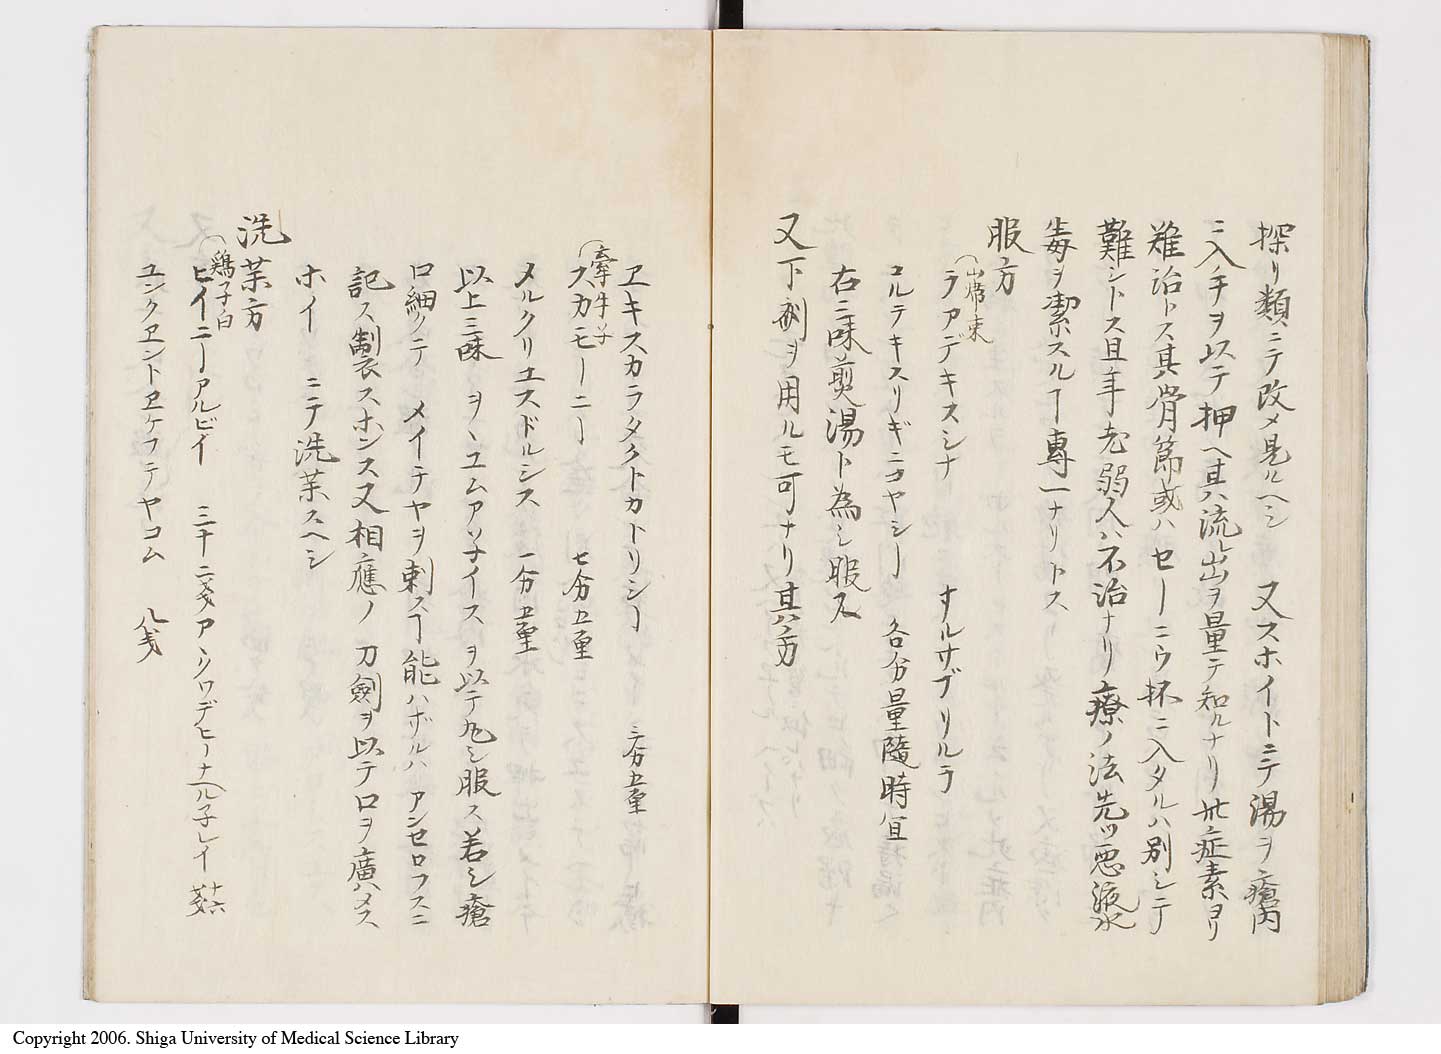 探リ類ニテ改メ見ルヘシ 又スホイトニテ湯ヲ瘡内
ニ入手ヲ以テ押ヘ其ハ流レ出ヲ量テ知ルナリ此症素ヨリ
難治トス其骨節或ハセーニウ抔ニ入タルハ別シテ
難シトス且年老弱人ハ不治ナリ療ノ法先ツ悪液水
毒ヲ潔スルヿ專一ナリトス
服方
山帰来
ラアデキスシナ サルサブリルラ
コルテキスリギニヤシー 各分量隨時宜
右二味煎湯ト為シ服ス
又下剤ヲ用ルモ可ナリ其ハ方
ヱキスカラタクトカトリシー 三分五重
牽牛子
スカモーニー 七分五重
メルクリユスドルシス 一分五重
以上三味 ヲヽユムアソ子イスヲ以テ丸シ服ス若シ瘡
口細クテ メイチヤヲ刺スヿ能ハザルハ アンセロフスニ
記ス製スホンス又相應ノ 刀劍ヲ以テロヲ廣ハメス
ホイ ニテ洗薬スヘシ
洗薬方
鶏子白
ヒイニーアルビイ 三十二戔アヽソワデヒーナヘル子レイ 十六戔
ユンクヱントヱケフテヤコム 八戔
Copyright 2006. Shiga University of Medical Science Library